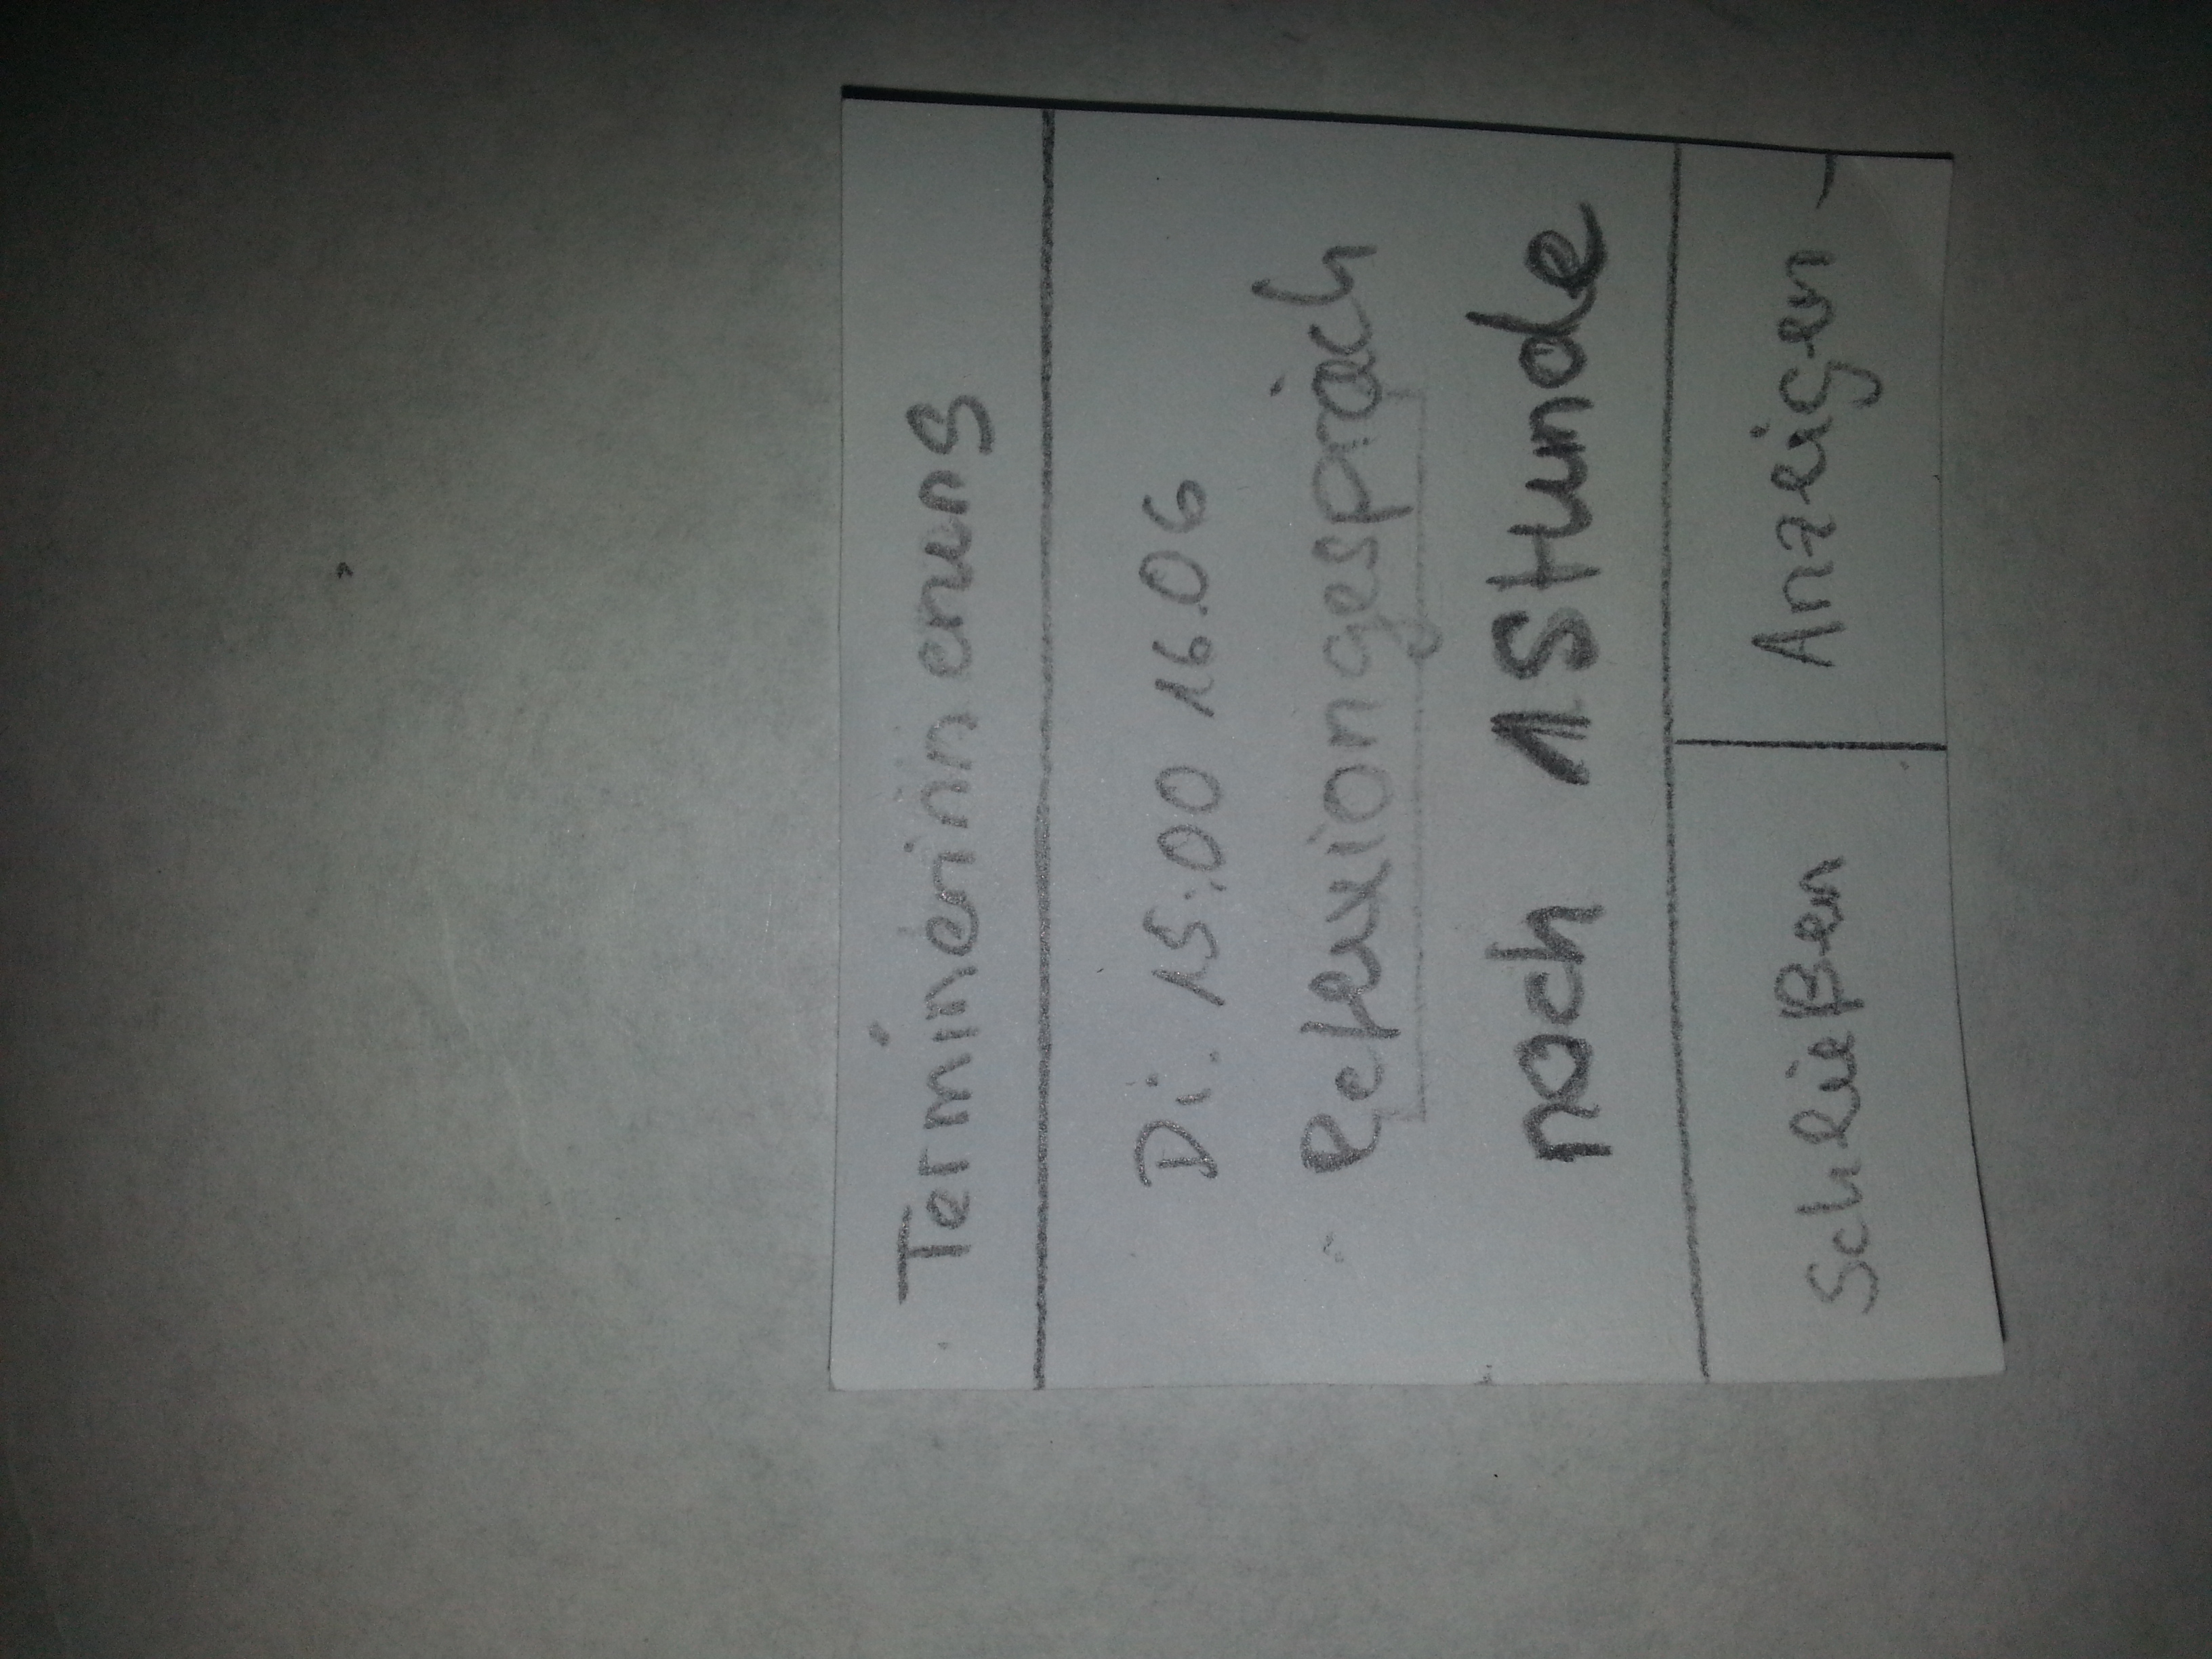 Terminerinnerung
Di. 15:00 16.06
Reflexiongespräch
noch 1 Stunde
Schließen Anzeigen